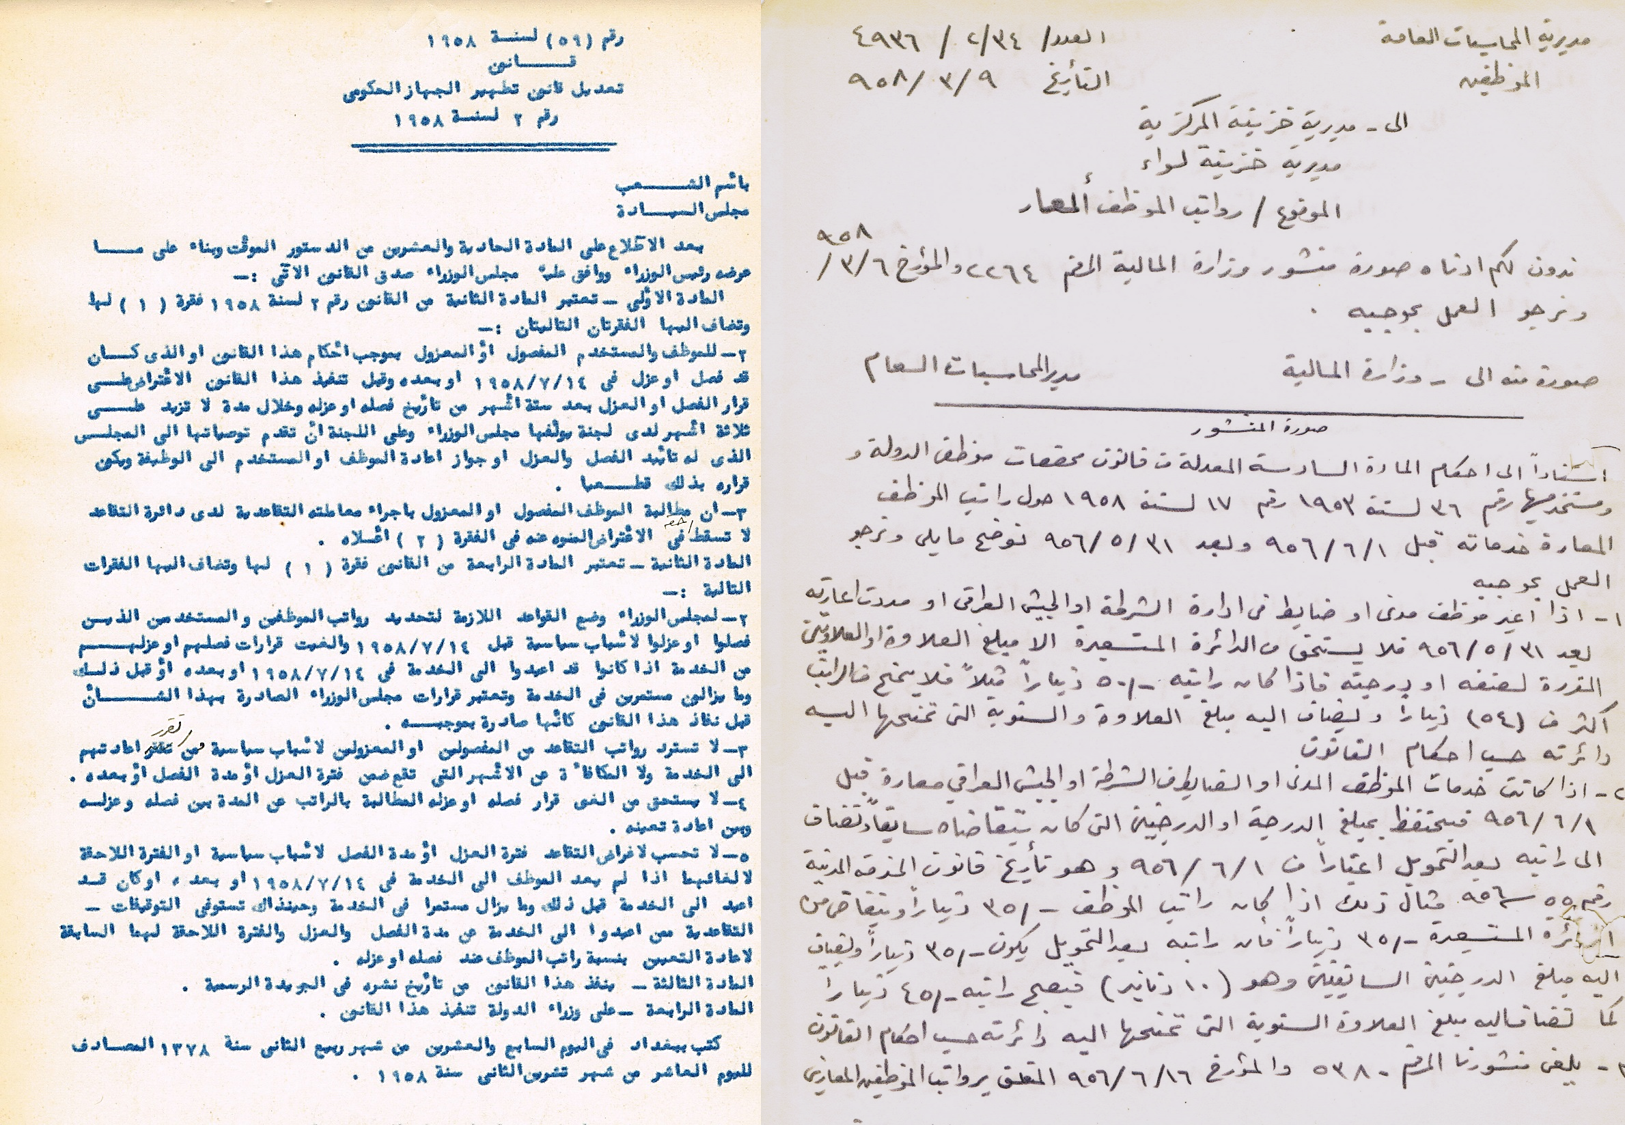 رقم (٥٩) لسنة ١٩٥٨
قانون
تعديل قانون تطهير الجهاز الحكومي
رقم ٢ لسنة ١٩٥٨
باسم الشعب
مجلس السيادة
بعد الاطلاع على المادة الحادية والعشرين من الدستور الموقت وبناء على ما
عرضه رئيس الوزراء ووافق عليه مجلس الوزراء صدق القانون الآتي :ـ
المادة الاولى ـ تعتبر المادة الثانية من القانون رقم ٢ لسنة ١٩٥٨ فقرة ( ١ ) لها
وتضاف اليها الفقرتان التاليتان :ـ
٢ـ للموظف والمستخدم المفصول أو المعزول بموجب أحكام هذا القانون او الذي كان
قد فصل او عزل في ١٩٥٨/٧/١٤ او بعده وقبل تنفيذ هذا القانون الاعتراض على
قرار الفصل او العزل بعد ستة أشهر من تأريخ فصله او عزله وخلال مدة لا تزيد على
ثلاثة أشهر لدى لجنة يؤلفها مجلس الوزراء وعلى اللجنة أن تقدم توصياتها الى المجلس
الذي له تأييد الفصل والعزل او جواز اعادة الموظف او المستخدم الى الوظيفة ويكون
قراره بذلك قطعيا .
٣ـ ان مطالبة الموظف المفصول او المعزول باجراء معاملته التقاعدية لدى دائرة التقاعد
لا تسقط حقه في الاعتراض المنوه عنه في الفقرة ( ٢ ) أعلاه .
المادة الثانية ـ تعتبر المادة الرابعة من القانون فقرة ( ١ ) لها وتضاف اليها الفقرات
التالية :ـ
٢ـ لمجلس الوزراء وضع القواعد اللازمة لتحديد رواتب الموظفين والمستخدمين الذين
فصلوا او عزلوا لأسباب سياسية قبل ١٩٥٨/٧/١٤ والغيت قرارات فصلهم او عزلهم
من الخدمة اذا كانوا قد اعيدوا الى الخدمة في ١٩٥٨/٧/١٤ او بعده أو قبل ذلك
وما يزالون مستمرين في الخدمة وتعتبر قرارات مجلس الوزراء الصادرة بهذا الشأن
قبل نفاذ هذا القانون كأنها صادرة بموجبه .
٣ـ لا تسترد رواتب التقاعد من المفصولين او المعزولين لأسباب سياسية ممن تقرر اعادتهم
الى الخدمة ولا المكافأة عن الأشهر التي تقع ضمن فترة العزل أو مدة الفصل أو بعده .
٤ـ لا يستحق من الغى قرار فصله او عزله المطالبة بالراتب عن المدة بين فصله وعزله
وبين اعادة تعيينه .
٥ـ لا تحسب لاغراض التقاعد فترة العزل أو مدة الفصل لأسباب سياسية او الفترة اللاحقة
لالغائهما اذا لم يعد الموظف الى الخدمة في ١٩٥٨/٧/١٤ او بعده ، او كان قد
اعيد الى الخدمة قبل ذلك وما يزال مستمرا في الخدمة وحينذاك تستوفى التوقيفات ـ
التقاعدية ممن اعيدوا الى الخدمة عن مدة الفصل والعزل والفترة اللاحقة لهما السابقة
لاعادة التعيين بنسبة راتب الموظف عند فصله او عزله .
المادة الثالثة ـ ينفذ هذا القانون من تأريخ نشره في الجريدة الرسمية .
المادة الرابعة ـ على وزراء الدولة تنفيذ هذا القانون .
كتب ببغداد في اليوم السابع والعشرين من شهر ربيع الثاني سنة ١٣٧٨ المصادف
لليوم العاشر من شهر تشرين الثاني سنة ١٩٥٨ .
مديرية المحاسبات العامة
الموظفين
العدد/ ٢/٣٤ / ٤٩٣٦
التأريخ ٩ /٣ /٩٥٨
الى ـ مديرية خزينة المركزية
مديرية خزينة لواء
الموضوع / رواتب الموظف المعار
ندون لكم ادناه صورة منشور وزارة المالية المرقم ٢٢٦٤ والمؤرخ ٣/٦/ ٩٥٨
ونرجو العمل بموجبه .
صورة منه الى ـ وزارة المالية
مدير المحاسبات العام
صورة المنشور
استناداً الى احكام المادة السادسة المعدلة من قانون مخصصات موظفي الدولة و
ومستخدميها رقم ٣٦ لسنة ١٩٥٣ رقم ١٧ لسنة ١٩٥٨ حول راتب الموظف
المعارة خدماته قبل ٩٥٦/٦/١ وبعد ٩٥٦/٥/٣١ نوضح مايلي ونرجو
العمل بموجبه
١ـ اذا اعير موظف مدني او ضابط في ادارة الشرطة او الجيش العراقي او مددت اعارته
بعد ٩٥٦/٥/٣١ فلا يستحق من الدائرة المستعيرة الا مبلغ العلاوة او العلاوتين
المقررة لصنفه او درجته فاذا كان راتبه ـ/٥٠ ديناراً مثلاً فلا يمنح من الراتب
اكثر من (٥٤) ديناراً ويضاف اليه مبلغ العلاوة والسنوية التي تمنحها اليه
دائرته حسب احكام القانون
٢ـ اذا كانت خدمات الموظف المدني او الضابط في الشرطة او الجيش العراقي معارة قبل
٩٥٦/٦/١ فيحتفظ بمبلغ الدرجة او الدرجتين التي كان يتقاضاه سابقاً وتضاف
الى راتبه بعد التحويل اعتباراً من ٩٥٦/٦/١ وهو تأريخ قانون الخدمة المدنية
رقم ٥٥ ٩٥٦ مثال ذلك اذا كان راتب الموظف ـ/٣٥ ديناراً ويتقاضى من
الدائرة المستعيرة ـ/٣٥ ديناراً فان راتبه بعد التحويل يكون ـ/٣٥ ديناراً ويضاف
اليه مبلغ الدرجتين السابقتين وهو (١٠ دنانير) فيصبح راتبه ـ/٤٥ ديناراً
كما تضاف اليه مبلغ العلاوة السنوية التي تمنحها اليه دائرته حسب احكام القانون
٣ـ يلغى منشورنا المرقم ـ ٥٣٨ والمؤرخ ٩٥٦/٦/١٦ المتعلق برواتب الموظفين المعارين